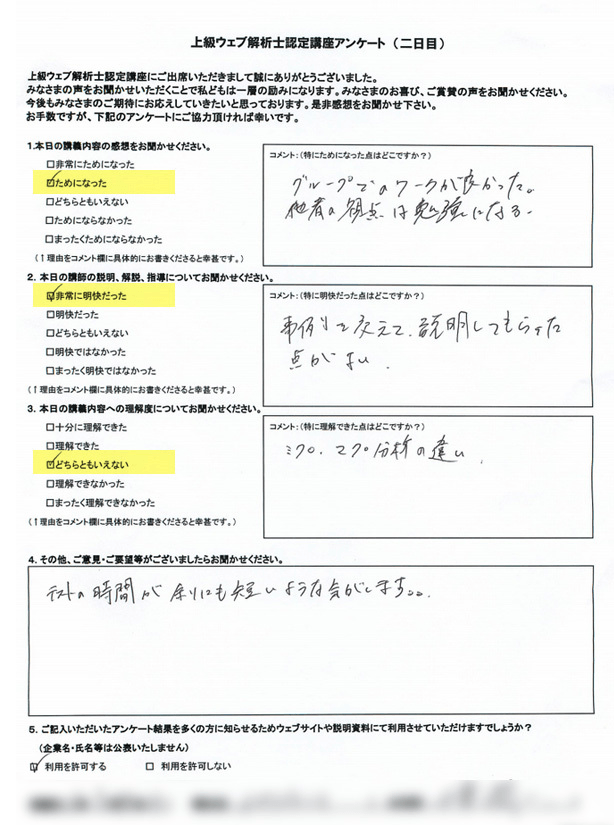 上級ウェブ解析士認定講座アンケート（二日目）
上級ウェブ解析士認定講座にご出席いただきまして誠にありがとうございました。
みなさまの声をお聞かせいただくことで私どもは一層の励みになります。みなさまのお喜び、ご賞賛の声をお聞かせください。
今後もみなさまのご期待にお応えしていきたいと思っております。是非感想をお聞かせ下さい。
お手数ですが、下記のアンケートにご協力頂ければ幸いです。
1.本日の講義内容の感想をお聞かせください。
□非常にためになった
☑ためになった
□どちらともいえない
□ためにならなかった
□まったくためにならなかった
（↑理由をコメント欄に具体的にお書きくださると幸甚です。）
コメント：（特にためになった点はどこですか？）
グループでのワークが良かった。
他者の観点は勉強になる。
2. 本日の講師の説明、解説、指導についてお聞かせください。
☑非常に明快だった
□明快だった
□どちらともいえない
□明快ではなかった
□まったく明快ではなかった
（↑理由をコメント欄に具体的にお書きくださると幸甚です。）
コメント：（特に明快だった点はどこですか？）
事例を交えて、説明してもらえた
点がよい、
3. 本日の講義内容への理解度についてお聞かせください。
□十分に理解できた
□理解できた
☑どちらともいえない
□理解できなかった
□まったく理解できなかった
（↑理由をコメント欄に具体的にお書きくださると幸甚です。）
コメント：（特に理解できた点はどこですか？）
ミクロ、マクロ分析の違い、
4. その他、ご意見・ご要望等がございましたらお聞かせください。
テストの時間が余りにも短いような気がします。。
5. ご記入いただいたアンケート結果を多くの方に知らせるためウェブサイトや説明資料にて利用させていただけますでしょうか？
（企業名・氏名等は公表いたしません）
☑ 利用を許可する　□ 利用を許可しない